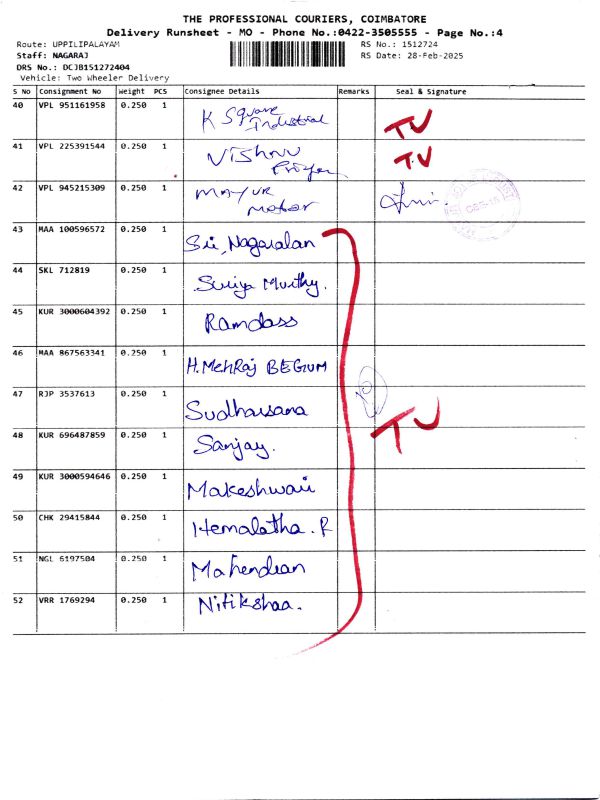 THE PROFESSIONAL COURIERS, COIMBATORE
Delivery Runsheet - MO - Phone No.:0422-3505555 - Page No.:4
Route: UPPILIPALAYAM RS No.: 1512724
Staff: NAGARAJ RS Date: 28-Feb-2025
DRS No.: DCJB151272404
Vehicle: Two Wheeler Delivery
S No Consignment No Weight PCS Consignee Details Remarks Seal & Signature
40 VPL 951161958 0.250 1 K Square Industrial TV
41 VPL 225391544 0.250 1 Vishnu Priya T.V
42 VPL 945215309 0.250 1 Mayur Motor
43 MAA 100596572 0.250 1 Sri, Nagaralan
44 SKL 712819 0.250 1 Suriya Murthy.
45 KUR 3000604392 0.250 1 Ramdass
46 MAA 867563341 0.250 1 H.MehRaj BEGIUM
47 RJP 3537613 0.250 1 Sudharsana
48 KUR 696487859 0.250 1 Sanjay. TV
49 KUR 3000594646 0.250 1 Makeshwari
50 CHK 29415844 0.250 1 Hemalatha . R
51 NGL 6197504 0.250 1 Mahendran
52 VRR 1769294 0.250 1 Nitikshaa.